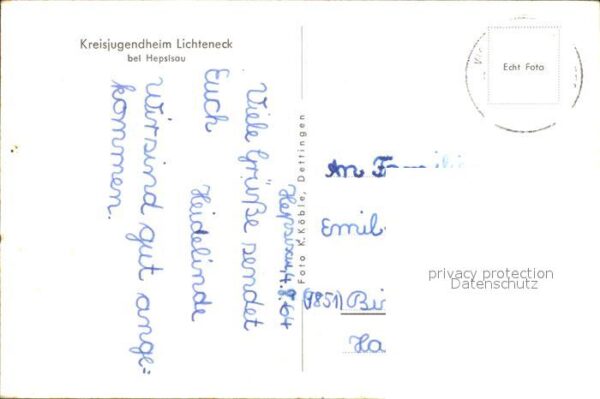 Kreisjugendheim Lichteneck
bei Hepsisau
Echt Foto
Hepsisau 4.8.64
Viele Grüße sendet
Euch Heidelinde
Wir sind gut ange=
kommen.
Foto K. Köble, Dettingen
An F
Emil
Bir
Ha
privacy protection
Datenschutz